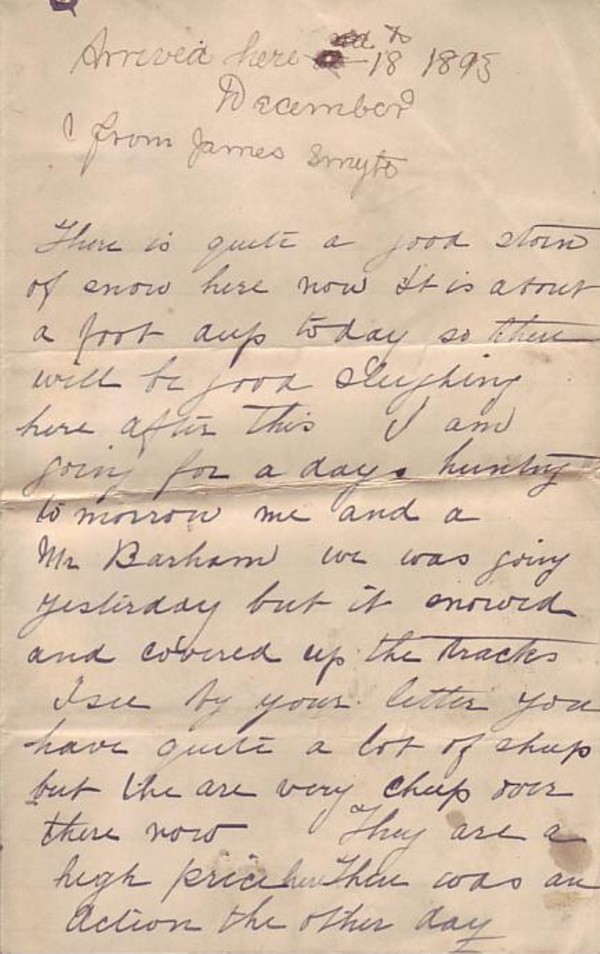 Arrived here 18 1895
December
from James Smyth
There is quite a good storm
of snow here now It is about
a foot deep today so there
will be good Sleighing
here after this I am
going for a days hunting
tomorrow me and a
Mr Barham we was going
yesterday but it snowed
and covered up the tracks
I see by your letter you
have quite a lot of sheep
but the are very cheep over
there now They are a
high price here There was an
Action the other day